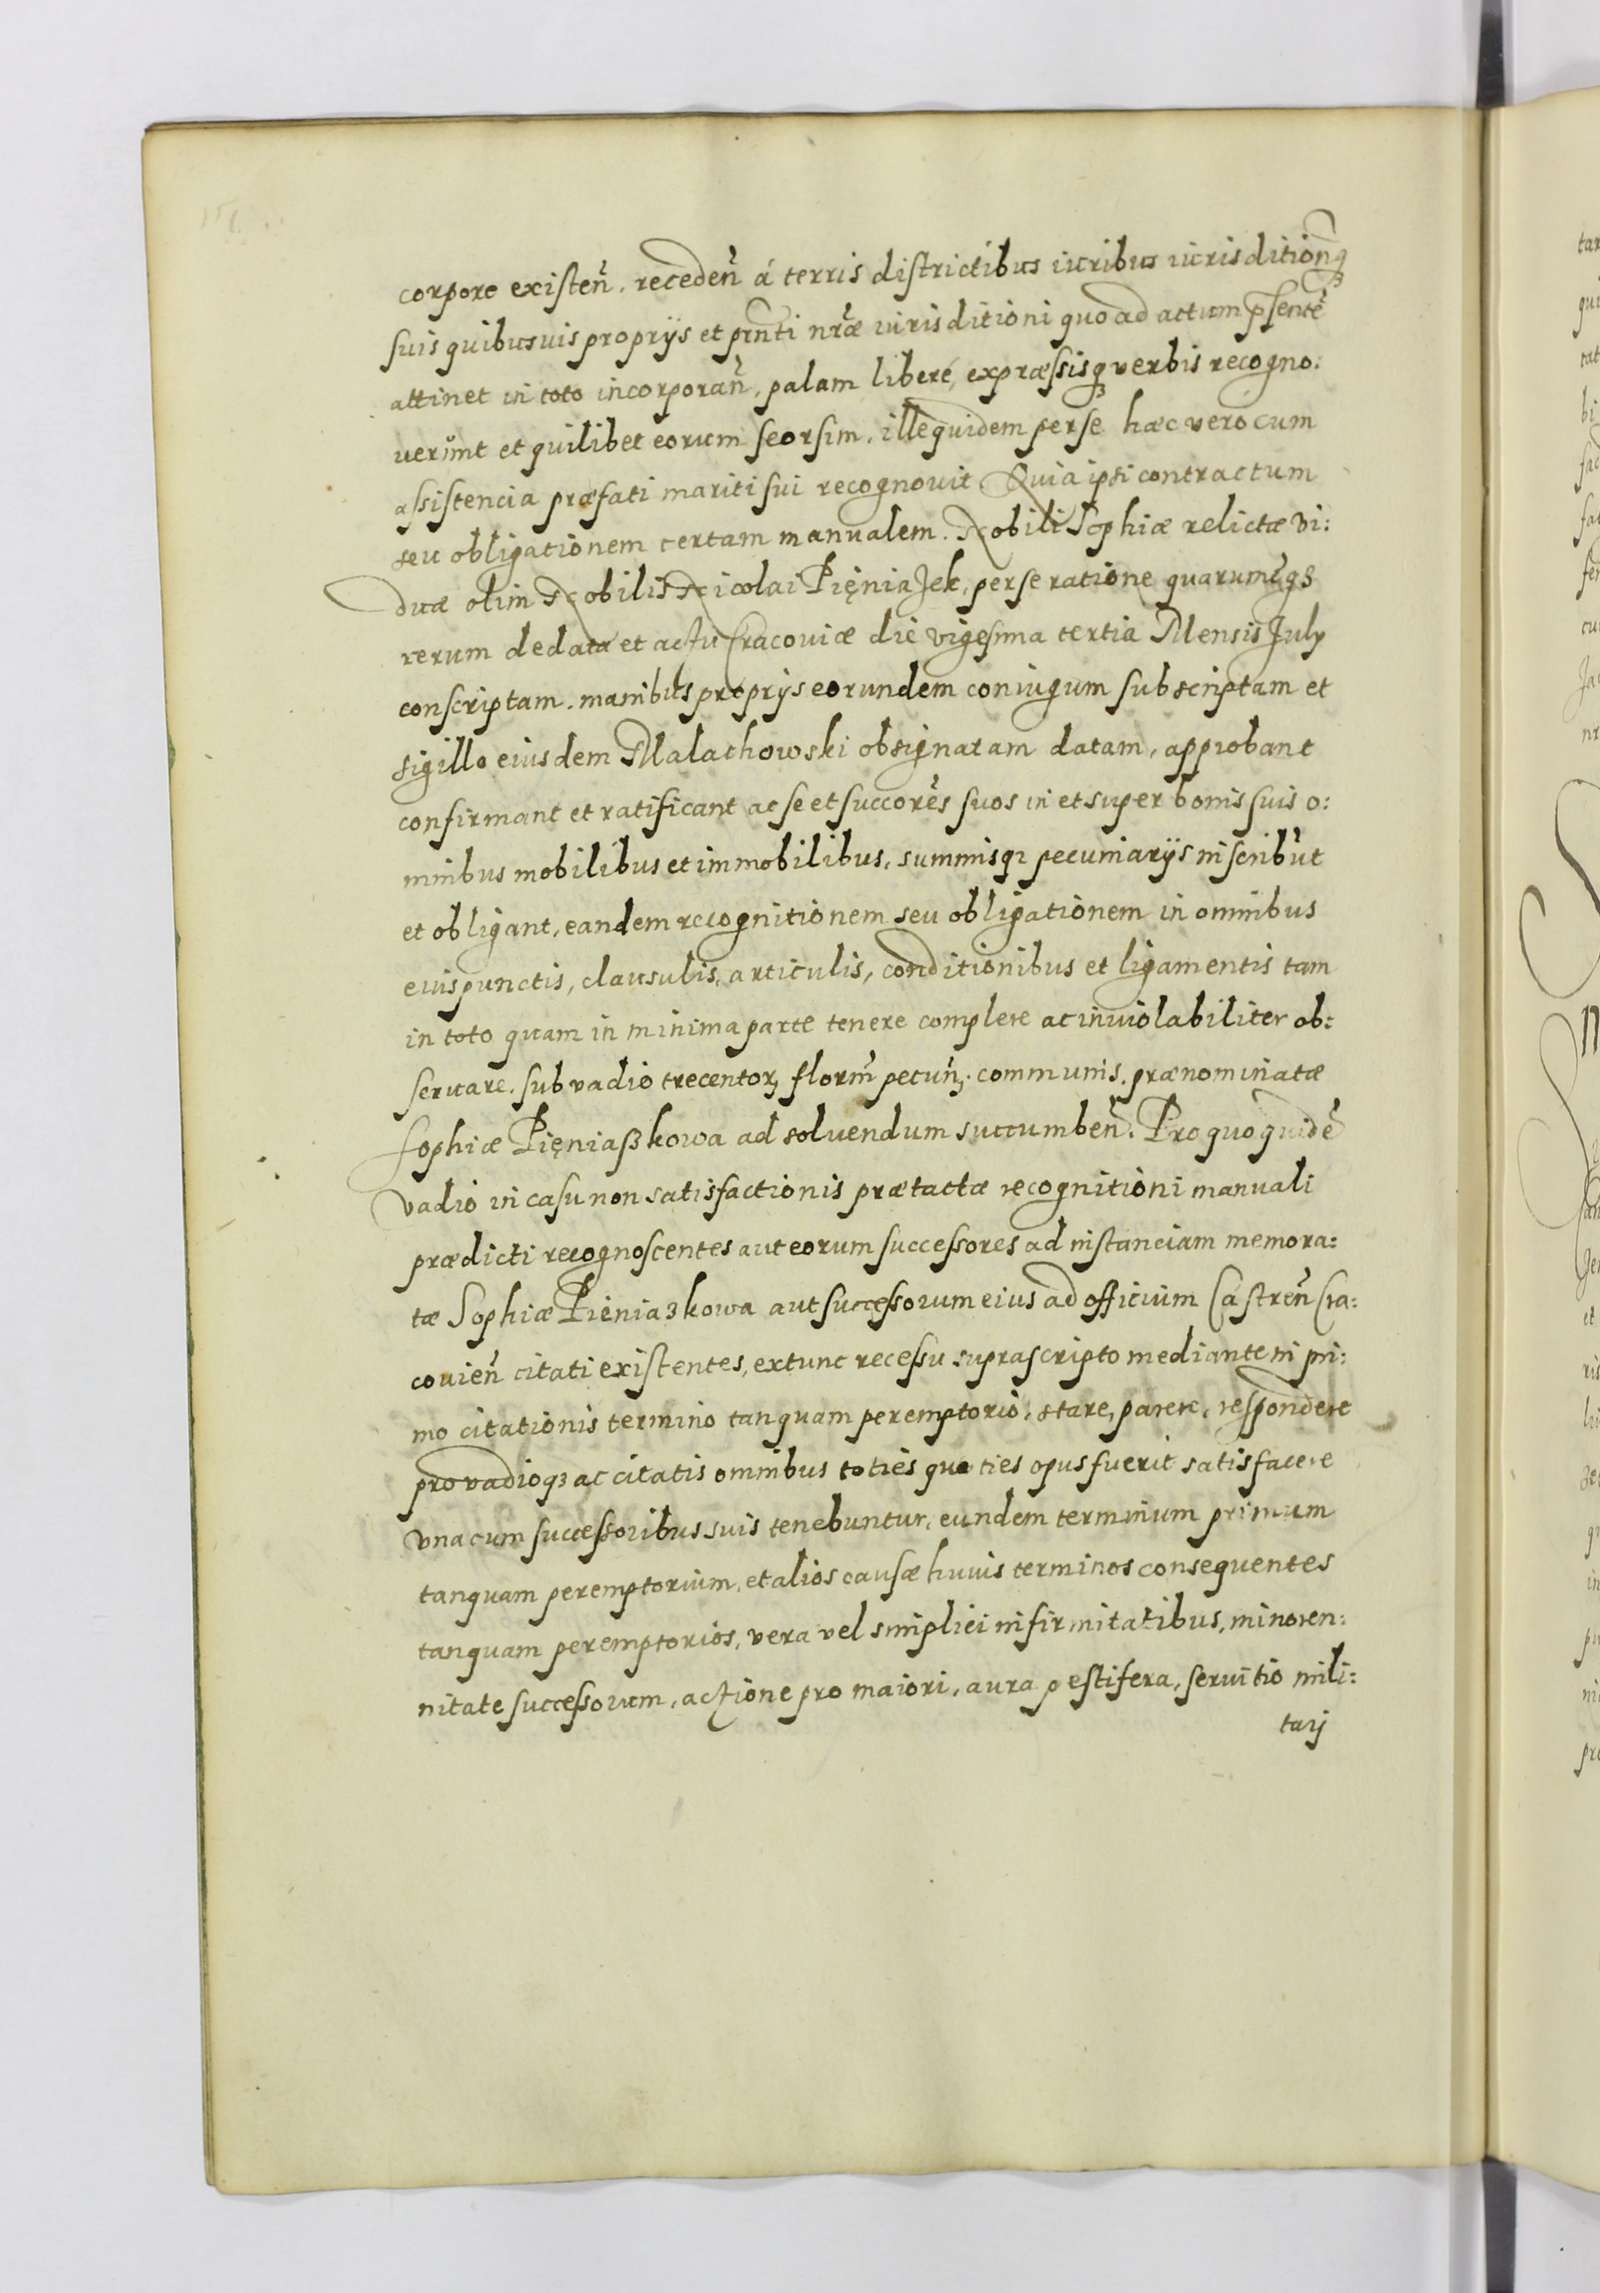 corpore existeñ. recedeñ á terris districtibus iuribus iurisdition̄q3
suis quibusuis proprijs et pñti nr̃æ iurisditioni quo ad actum p̃sentẽ
attinet in toto incorporañ, palam liberé, expræssisq3 verbis recogno:
uerũnt et quilibet eorum seorsim, ille quidem per se hæc vero cum
assistencia præfati mariti sui recognouit Quia ipsi contractum
seu obligationem certam manualem. Nobili Sophiæ relictæ vi:
duæ olim Nobilis Nicolai Pięniążek, per se ratione quarumc̃q3
rerum de data et actu Cracouiæ die vigesima tertia Mensis July
conscriptam. manibus proprijs eorundem coniugum subscriptam et
sigillo eiusdem Malachowski obsignatam datam, approbant
confirmant et ratificant ac se et succorẽs suos in et super bonis suis o:
mnibus mobilibus et immobilibus, summisq3 pecuniarijs inscribũt
et obligant, eandem recognitionem seu obligationem in omnibus
eius punctis, clausulis, articulis, conditionibus et ligamentis tam
in toto quam in minima parte tenere complere ac inuiolabiliter ob:
seruare. sub vadio trecentor3 florm̃ pecuñ. communis. prænominatæ
Sophiæ Pięniaßkowa ad soluendum succumbeñ. Pro quo quidẽ
vadio in casu non satisfactionis prætactæ recognitioni manuali
prædicti recognoscentes aut eorum successores ad instanciam memora:
tæ Sophiæ Pieniazkowa aut successorum eius ad officium Castreñ Cra:
couieñ citati existentes, extunc recessu suprascripto mediante in pri:
mo citationis termino tanquam peremptorio, stare, parere, respondere
pro vadioq3 ac citatis omnibus toties quoties opus fuerit satisfacere
vna cum successoribus suis tenebuntur, eundem terminum primum
tanquam peremptorium, et alios causæ huius terminos consequentes
tanquam peremptorios, vera vel simplici infirmitatibus, minoren:
nitate successorum, actione pro maiori, aura pestifera, seruitio mili:
tarj